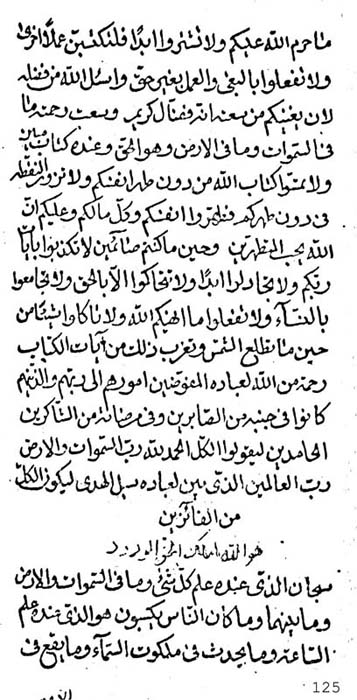 ما حرم الله عليكم ولا تشتروا ابدًا فلتكتبن عملًا اخرى
ولا تفعلوا بالبغى والعمل بغير حق واسئل الله من فضله
لان يغنيكم من سعته انه فضال كريم وسعت رحمته ما
فى السموات وما فى الارض وهو الحق وعنده كتاب مبين
ولا تمسوا كتاب الله من دون طهر انفسكم ولا
فى دون طهركم فطهروا انفسكم وكل مالكم وعليكم ان
الله يحب المطهرين وحين ما كنتم صائمين لا تكذبوا بايات
ربكم ولا تجادلوا ابدًا ولا تحاكوا الا بالحق ولا تجامعوا
بالنسآء ولا تفعلوا ما انهيكم الله ولا تاكلوا شيئا من
حين ما تطلع الشمس وتغرب ذلك من آيات الكتاب
رحمة من الله لعباده المفوضين امورهم الى ربهم والذينهم
كانوا فى جنبه من الصابرين وفى مرضاته من الشاكرين
الحامدين ليقولوا الكل الحمد لله رب السموات والارض
رب العالمين الذى يبين لعباده سبل الهدى ليكون الكل
من الفائزين
هو الله الملك العزيز الودود
سبحان الذى عنده علم كل شئ وما فى السموات والارض
وما بينهما وما كان الناس يكسبون هو الذى عنده علم
الساعة وما يحدث فى ملكوت السمآء وما يقع فى
125